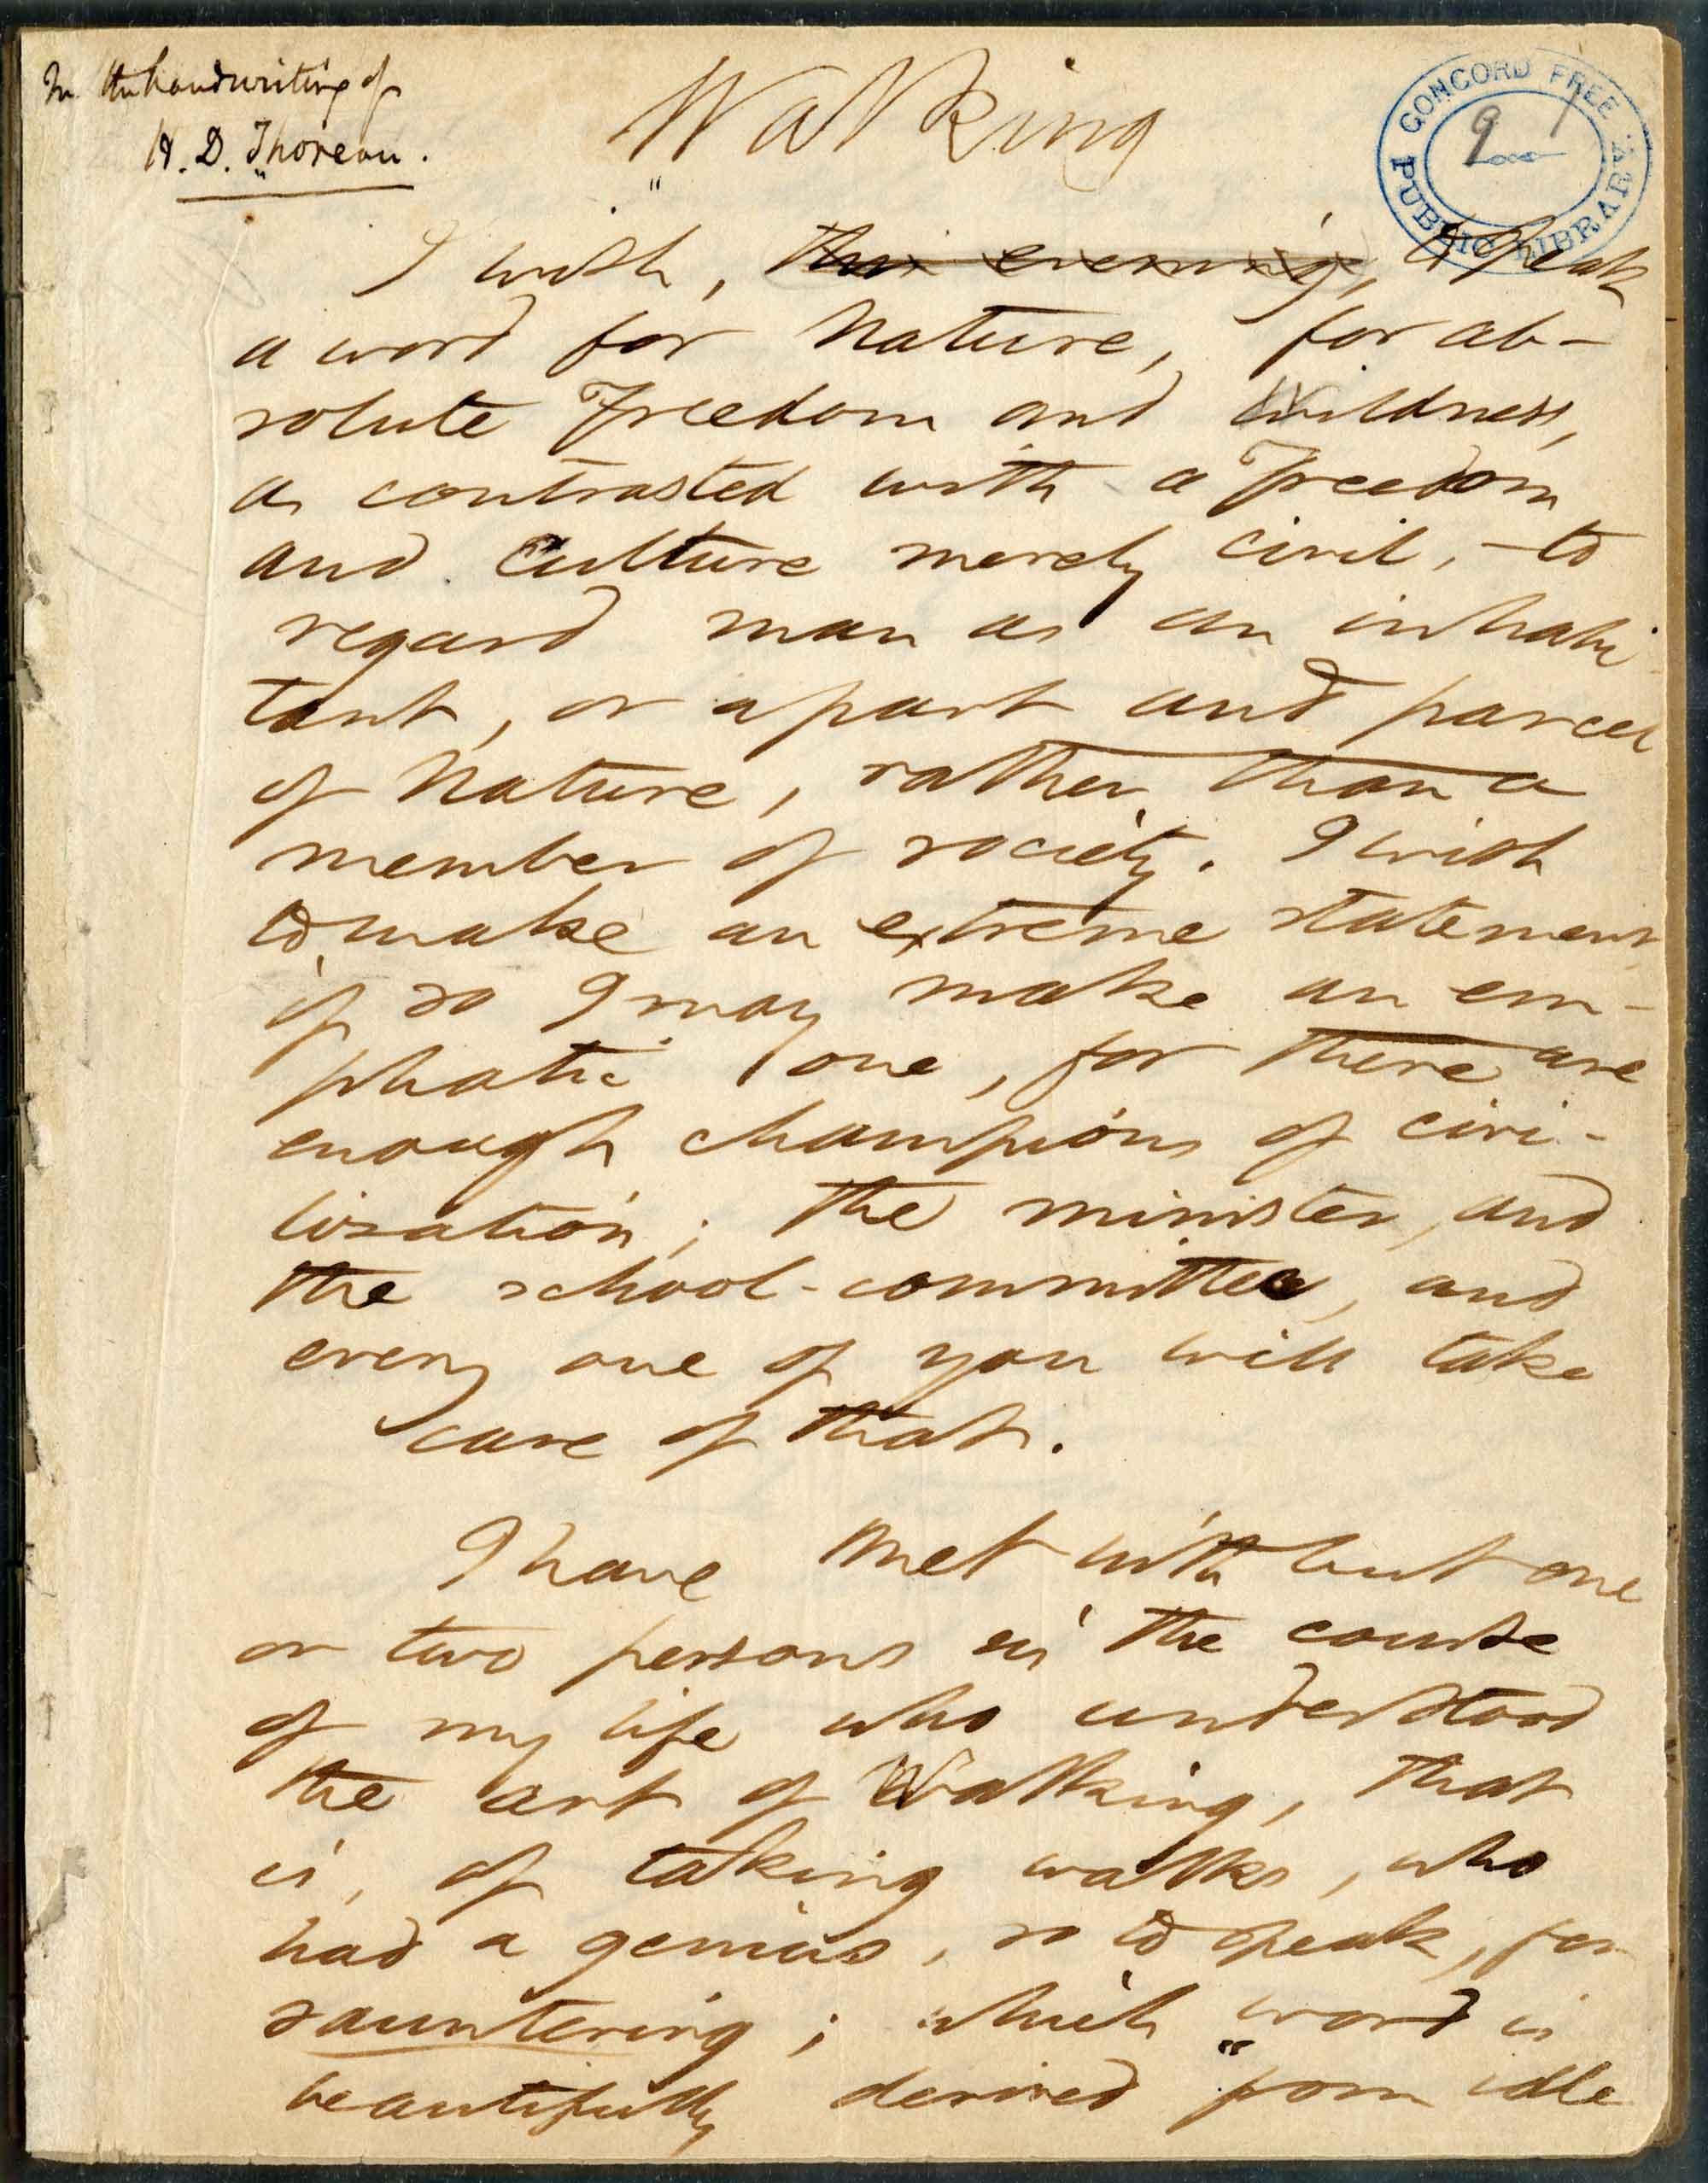 In the handwriting of
H. D. Thoreau.
Walking
CONCORD FREE
PUBLIC LIBRARY
9
I wish, this evening, to speak
a word for Nature, for ab-
solute Freedom and Wildness,
as contrasted with a Freedom
and Culture merely civil, — to
regard man as an inhabi-
tant, or a part and parcel
of Nature, rather than a
member of society. I wish
to make an extreme statement,
if so I may make an em-
phatic one, for there are
enough champions of civi-
lization; the minister, and
the school-committee, and
every one of you will take
care of that.
I have met with but one
or two persons in the course
of my life who understood
the art of Walking, that
is, of taking walks, who
had a genius, so to speak, for
sauntering; which word is
beautifully derived "from idle